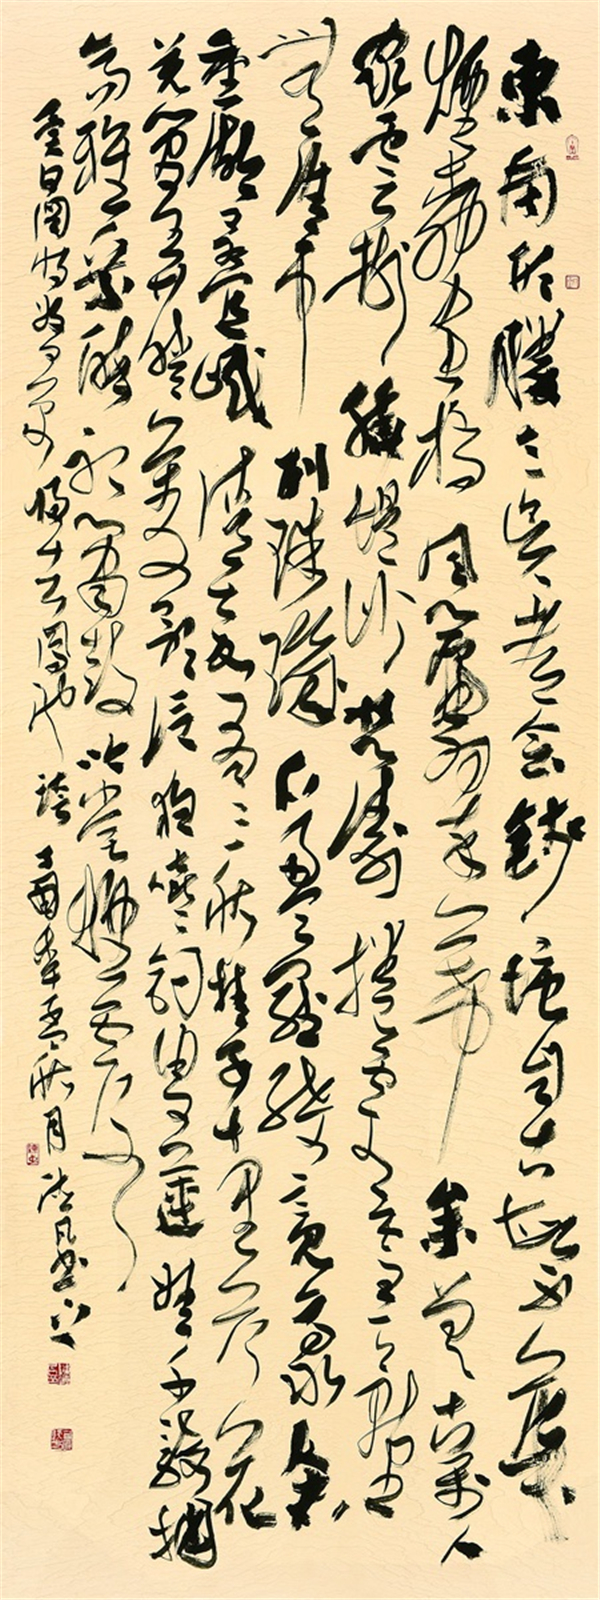 東南形勝三吳都會錢塘自古繁華
煙柳畫橋風簾翠幕參差十萬人
家雲樹繞堤沙怒濤捲霜雪天塹
無涯市列珠璣戶盈羅綺競豪奢
重湖疊巘清嘉有三秋桂子十里荷花
羌管弄晴菱歌泛夜嬉嬉釣叟蓮娃千騎擁
高牙乘醉聽簫鼓吟賞煙霞
異日圖將好景歸去鳳池誇